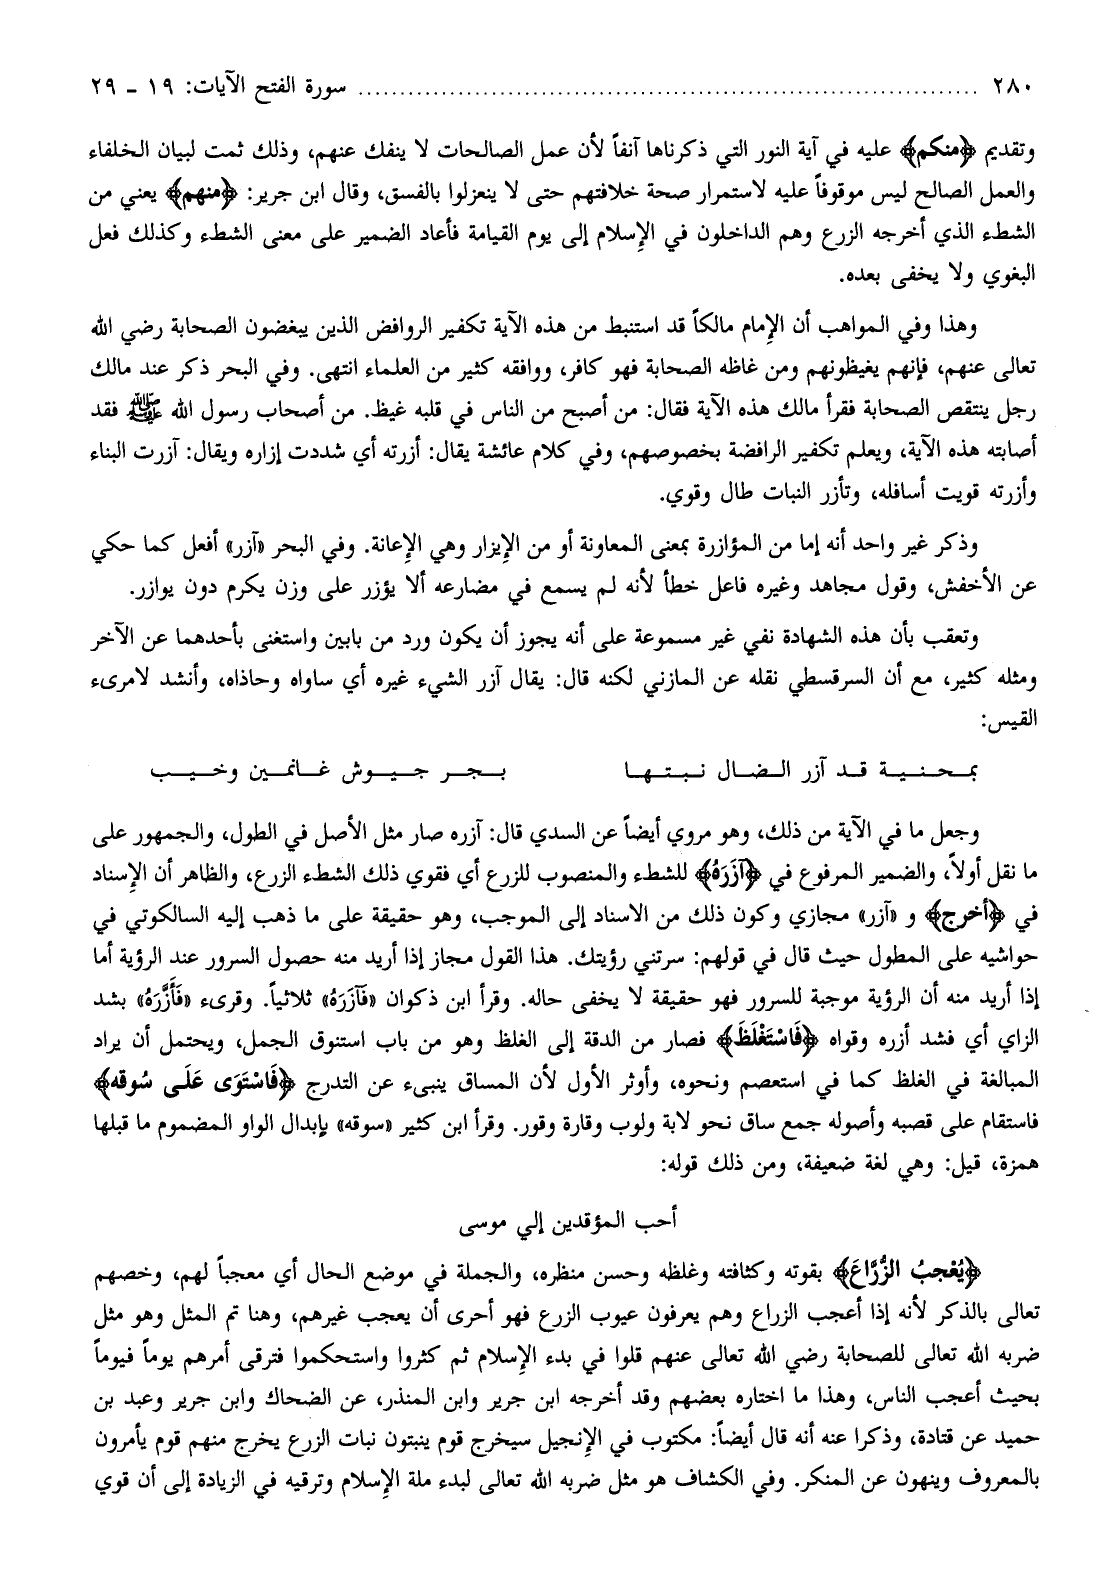 ٢٨٠ ........................................................................... سورة الفتح الآيات: ١٩ - ٢٩
وتقديم ﴿منكم﴾ عليه في آية النور التي ذكرناها آنفاً لأن عمل الصالحات لا ينفك عنهم، وذلك ثمت لبيان الخلفاء
والعمل الصالح ليس موقوفاً عليه لاستمرار صحة خلافتهم حتى لا ينعزلوا بالفسق، وقال ابن جرير: ﴿منهم﴾ يعني من
الشطء الذي أخرجه الزرع وهم الداخلون في الإِسلام إلى يوم القيامة فأعاد الضمير على معنى الشطء وكذلك فعل
البغوي ولا يخفى بعده.
وهذا وفي المواهب أن الإِمام مالكاً قد استنبط من هذه الآية تكفير الروافض الذين يبغضون الصحابة رضي الله
تعالى عنهم، فإنهم يغيظونهم ومن غاظه الصحابة فهو كافر، ووافقه كثير من العلماء انتهى. وفي البحر ذكر عند مالك
رجل ينتقص الصحابة فقرأ مالك هذه الآية فقال: من أصبح من الناس في قلبه غيظ. من أصحاب رسول الله ﷺ فقد
أصابته هذه الآية، ويعلم تكفير الرافضة بخصوصهم، وفي كلام عائشة يقال: أزرته أي شددت إزاره ويقال: آزرت البناء
وأزرته قويت أسافله، وتأزر النبات طال وقوي.
وذكر غير واحد أنه إما من المؤازرة بمعنى المعاونة أو من الإِيزار وهي الإِعانة. وفي البحر «آزر» أفعل كما حكي
عن الأخفش، وقول مجاهد وغيره فاعل خطأ لأنه لم يسمع في مضارعه ألا يؤزر على وزن يكرم دون يوازر.
وتعقب بأن هذه الشهادة نفي غير مسموعة على أنه يجوز أن يكون ورد من بابين واستغنى بأحدهما عن الآخر
ومثله كثير، مع أن السرقسطي نقله عن المازني لكنه قال: يقال آزر الشيء غيره أي ساواه وحاذاه، وأنشد لامرىء
القيس:
بمحنية قد آزر الضال نبتها بجر جيوش غانمين وخيب
وجعل ما في الآية من ذلك، وهو مروي أيضاً عن السدي قال: آزره صار مثل الأصل في الطول، والجمهور على
ما نقل أولاً، والضمير المرفوع في ﴿آزَرَهُ﴾ للشطء والمنصوب للزرع أي فقوي ذلك الشطء الزرع، والظاهر أن الإِسناد
في ﴿أخرج﴾ و «آزر» مجازي وكون ذلك من الاسناد إلى الموجب، وهو حقيقة على ما ذهب إليه السالكوتي في
حواشيه على المطول حيث قال في قولهم: سرتني رؤيتك. هذا القول مجاز إذا أريد منه حصول السرور عند الرؤية أما
إذا أريد منه أن الرؤية موجبة للسرور فهو حقيقة لا يخفى حاله. وقرأ ابن ذكوان «فَآزَرَهُ» ثلاثياً. وقرىء «فَأَزَّرَهُ» بشد
الزاي أي فشد أزره وقواه ﴿فَاسْتَغْلَظَ﴾ فصار من الدقة إلى الغلظ وهو من باب استنوق الجمل، ويحتمل أن يراد
المبالغة في الغلظ كما في استعصم ونحوه، وأوثر الأول لأن المساق ينبىء عن التدرج ﴿فَاسْتَوَى عَلَى سُوقه﴾
فاستقام على قصبه وأصوله جمع ساق نحو لابة ولوب وقارة وقور. وقرأ ابن كثير «سوقه» بإبدال الواو المضموم ما قبلها
همزة، قيل: وهي لغة ضعيفة، ومن ذلك قوله:
أحب المؤقدين إلي موسى
﴿يُعْجبُ الزُّرَّاعَ﴾ بقوته وكثافته وغلظه وحسن منظره، والجملة في موضع الحال أي معجباً لهم، وخصهم
تعالى بالذكر لأنه إذا أعجب الزراع وهم يعرفون عيوب الزرع فهو أحرى أن يعجب غيرهم، وهنا تم المثل وهو مثل
ضربه الله تعالى للصحابة رضي الله تعالى عنهم قلوا في بدء الإِسلام ثم كثروا واستحكموا فترقى أمرهم يوماً فيوماً
بحيث أعجب الناس، وهذا ما اختاره بعضهم وقد أخرجه ابن جرير وابن المنذر، عن الضحاك وابن جرير وعبد بن
حميد عن قتادة، وذكرا عنه أنه قال أيضاً: مكتوب في الإِنجيل سيخرج قوم ينبتون نبات الزرع يخرج منهم قوم يأمرون
بالمعروف وينهون عن المنكر. وفي الكشاف هو مثل ضربه الله تعالى لبدء ملة الإِسلام وترقيه في الزيادة إلى أن قوي